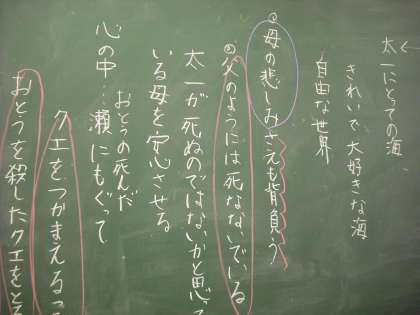 太一にとっての海
きれいで大好きな海
自由な世界
①母の悲しみさえも背負う
②父のようには死なないでいる
太一が死ぬのではないかと思っ
いる母を安心させる
おとうの死んだ
心の中…瀬にもぐって
クエをつかまえるっ
おとうを殺したクエをと